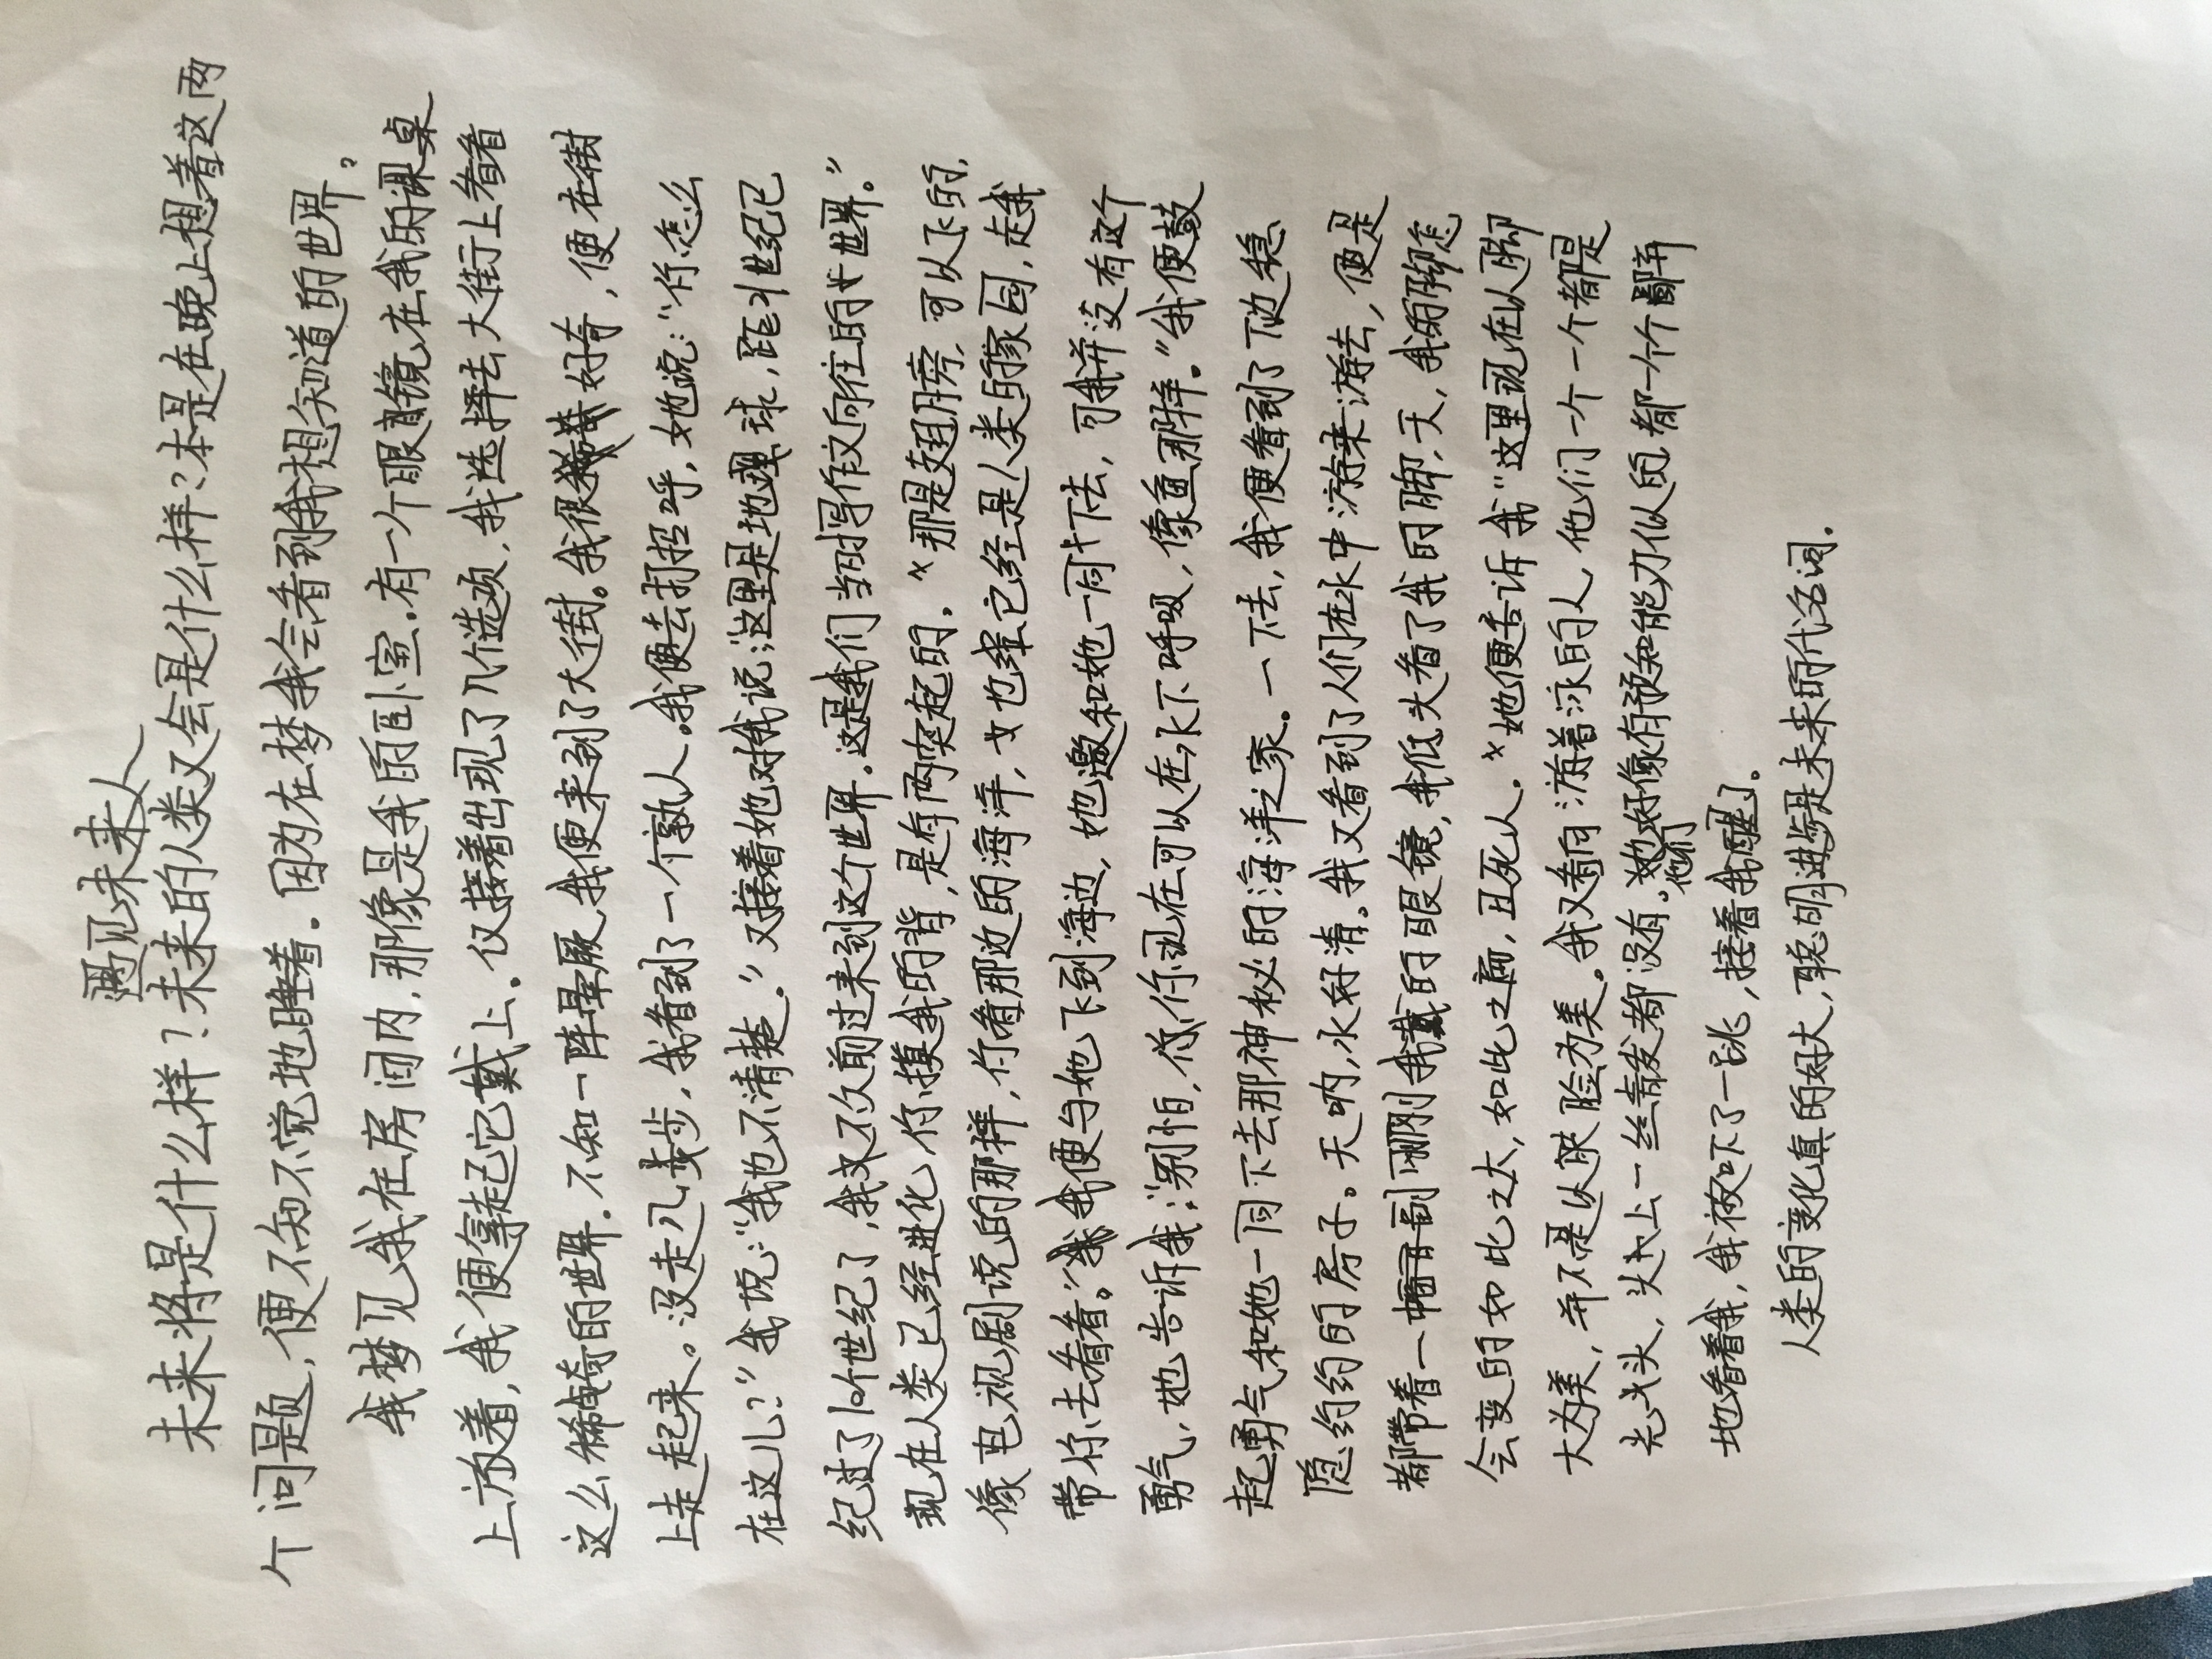 遇见未来人
未来将是什么样?未来的人类又会是什么样?本是在晚上想着这两
个问题,便不知不觉地睡着.因为在梦我会看到我想知道的世界。
我梦见我在房间内,那像是我的卧室.有一个眼镜在我的课桌
上放着,我便拿起它戴上.仅接着出现了几个选项,我选择去大街上看看
这么稀奇的世界.不知一阵晕厥,我便来到了大街。我很好奇,便在街
上走起来。没走几步,我看到了一个熟人.我便去打招呼,她说:“你怎么
在这儿?”我说:“我也不清楚.”又接着她对我说:“这里是地球,距21世纪已
纪过了10个世纪了,我不久前过来到这个世界.这是我们当时写作文向往的世界。”
现在人类已经进化,你摸我的背,是有两突起的.“那是翅膀,可以飞的.
像电视剧说的那样,你看那边的海洋,也纪它经是人类的家园,走我
带你去看看。”我便与她飞到海边,她邀和她一同下去,可我并没有这个
勇气,她告诉我:“别怕,你现在可以在水下呼吸,像鱼那样。”我便鼓
起勇气和她一同下去那神秘的海洋之家.一下去,我便看到了下边稳
隐约约的房子。天呐,水好清。我又看到了人们在水中游来游去,便是
都带着一副刚刚我戴的眼镜,我低头看了我的脚,天,我的脚怎
会变的如此之大,如此之扁,丑死人.“她便告诉我“这里现在以脚
大为美,并不是以脸为美。我又看向游着泳的人,他们一个一个都是
光头,头上一丝青发都没有.他们好像有预知能力似的都一个个翻
地看着我,我被吓了一跳,接着我醒了.
人类的变化真的好大,聪明进步是未来的代名词.